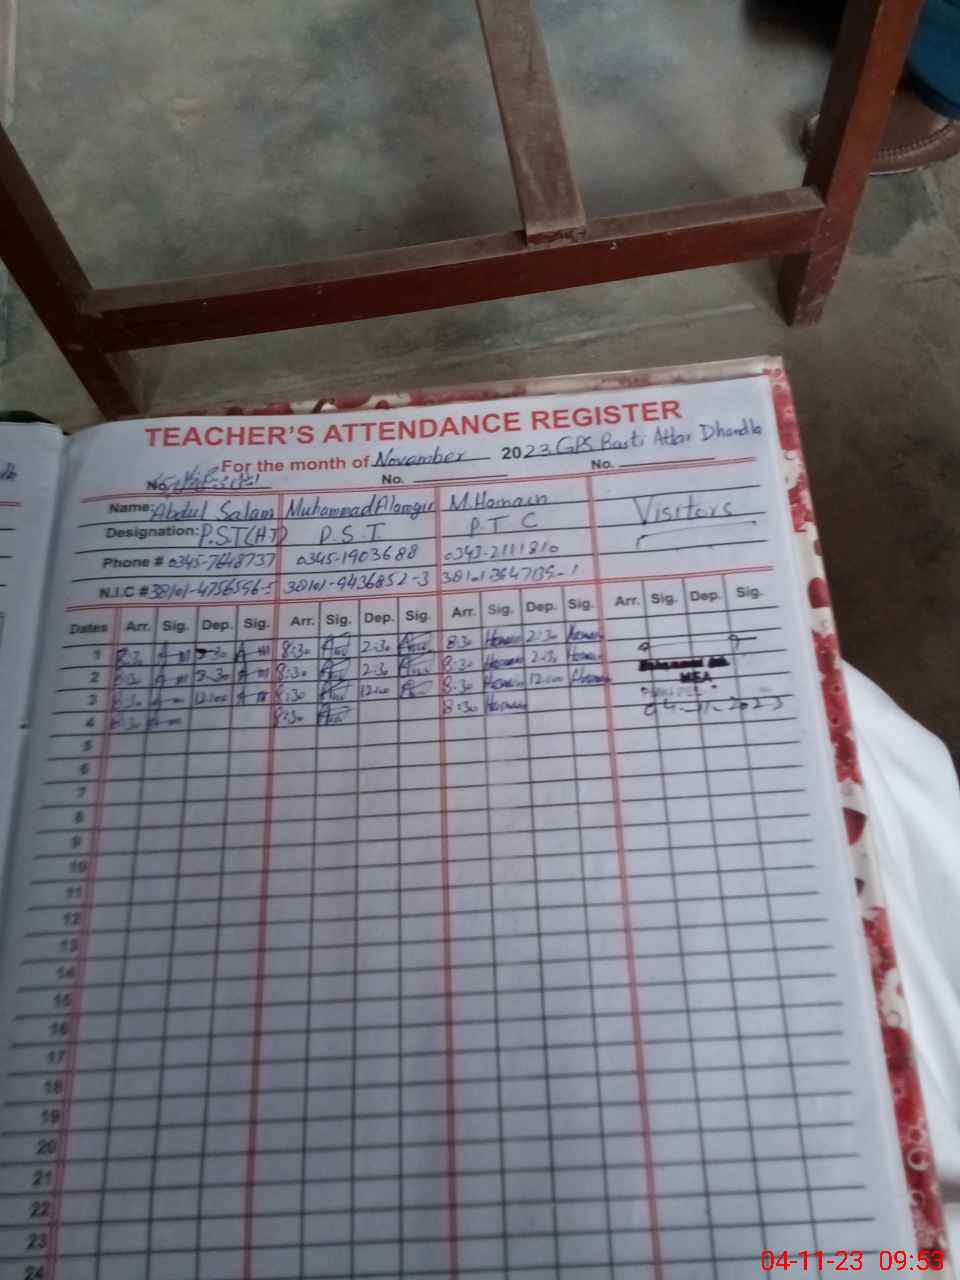 TEACHER'S ATTENDANCE REGISTER
For the month of November 2023 GPS Basti Attar Dhandla
No. No. No.
Name: Abdul Salam Muhammad Alamgir M. Hasnain Visitors
Designation: P.S.T (HT) P.S.T P.T.C
Phone # 0345-7648737 0345-1903688 0343-2111810
N.I.C # 38101-4756596-5 38101-9436852-3
Dates Arr. Sig. Dep. Sig. Arr. Sig. Dep. Sig. Arr. Sig. Dep. Sig. Arr. Sig. Dep. Sig.
1 8:30 8:30 2:30 8:30 Hasnain 2:30 Hasnain
2 8:30 8:30 2:30 8:30 Hasnain 2:30 Hasnain
3 8:30 12:00 8:30 12:00 8:30 Hasnain 12:00 Hasnain MEA
4 8:30 8:30 8:30 Hasnain 04-11-2023
5
6
7
8
9
10
11
12
13
14
15
16
17
18
19
20
21
22
23
24
04-11-23 09:53